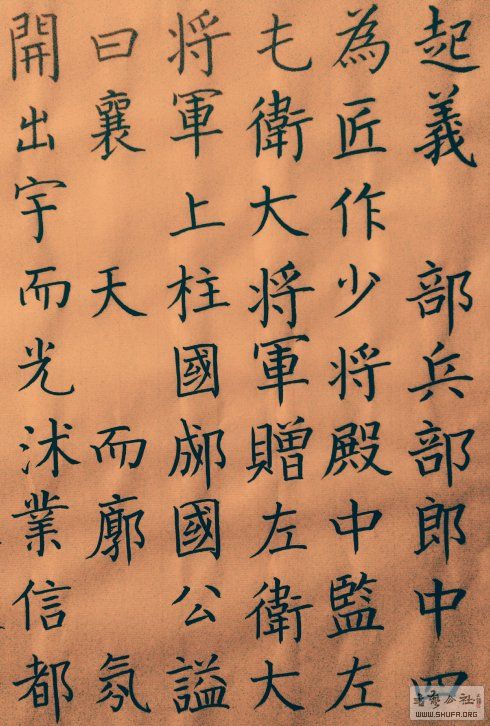 起義 部兵部郎中四
為匠作少将殿中監左
屯衛大将軍贈左衛大
将軍上柱國郕國公謚
曰襄 天 而廓 氛
開出宇而光沭業信都
WWW.SHUFA.ORG